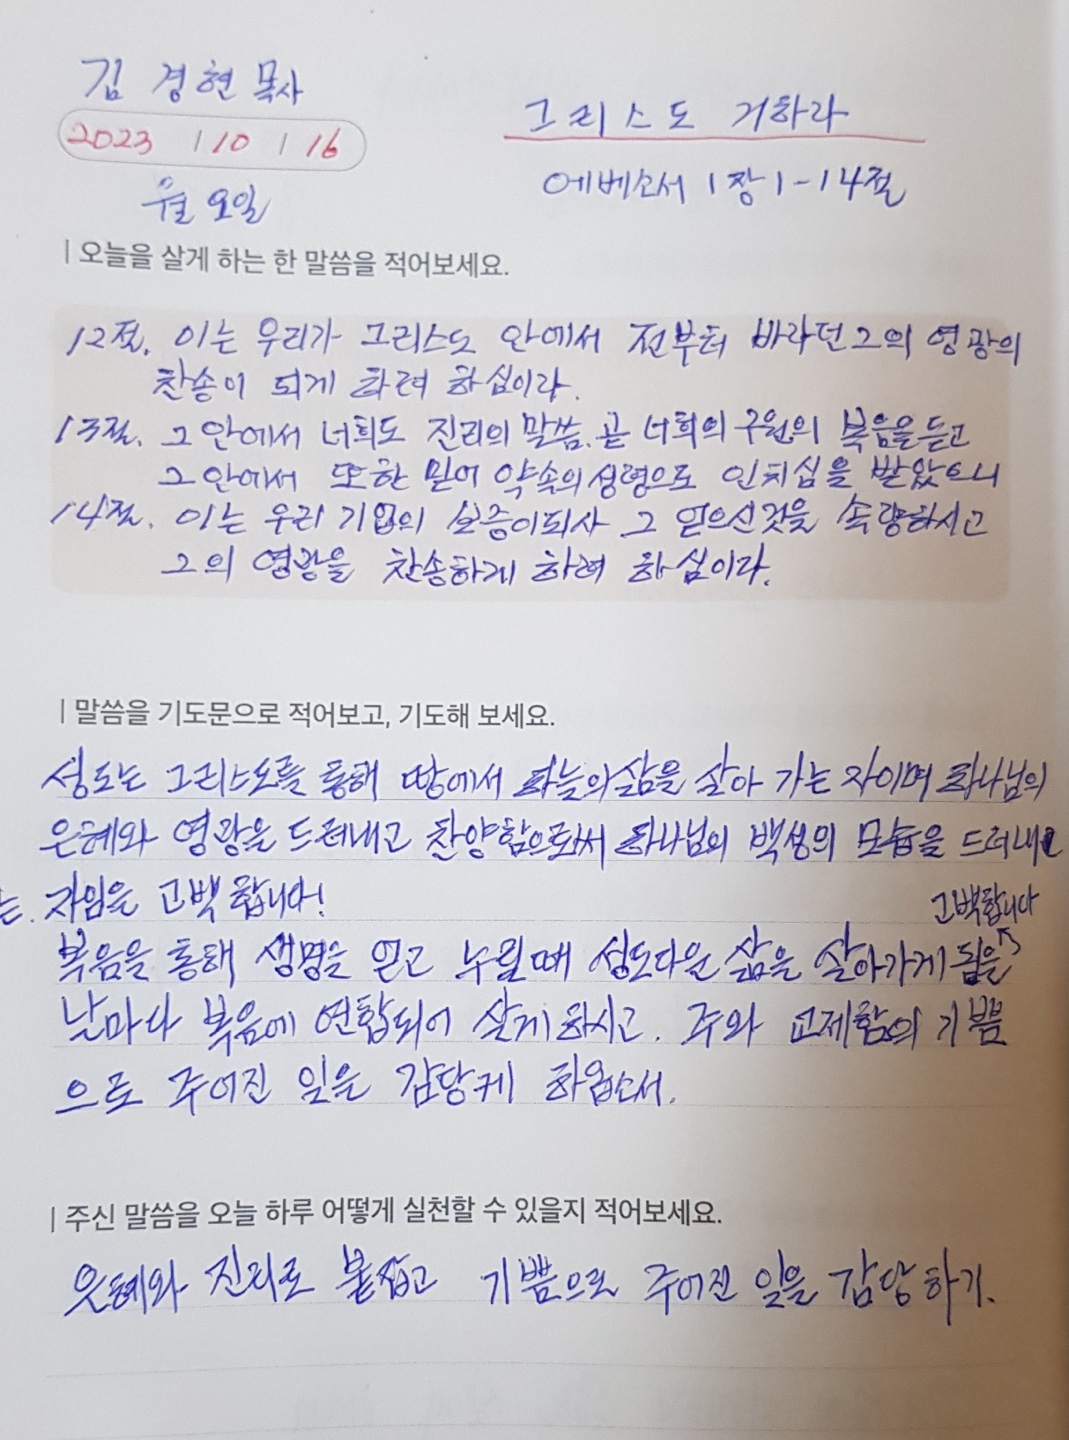 김 경현 목사
2023 / 10 / 16
그리스도 거하라
월요일
에베소서 1장 1-14절
| 오늘을 살게 하는 한 말씀을 적어보세요.
12절. 이는 우리가 그리스도 안에서 전부터 바라던 그의 영광의
찬송이 되게 하려 하심이라.
13절. 그 안에서 너희도 진리의 말씀. 곧 너희의 구원의 복음을 듣고
그 안에서 또한 믿어 약속의 성령으로 인치심을 받았으니
14절. 이는 우리 기업의 보증이 되사 그 얻으신 것을 속량하시고
그의 영광을 찬송하게 하려 하심이라.
| 말씀을 기도문으로 적어보고, 기도해 보세요.
성도는 그리스도를 통해 땅에서 하늘의 삶을 살아 가는 자이며 하나님의
은혜와 영광을 드러내고 찬양함으로써 하나님의 백성의 모습을 드러내
는. 자임을 고백 합니다!
고백합니다
복음을 통해 생명을 얻고 누릴때 성도다운 삶을 살아가게 됨을
날마다 복음에 연합되어 살게 하시고. 주와 교제함의 기쁨
으로 주어진 일을 감당케 하옵소서.
| 주신 말씀을 오늘 하루 어떻게 실천할 수 있을지 적어보세요.
은혜와 진리로 붙잡고 기쁨으로 주어진 일을 감당하기.